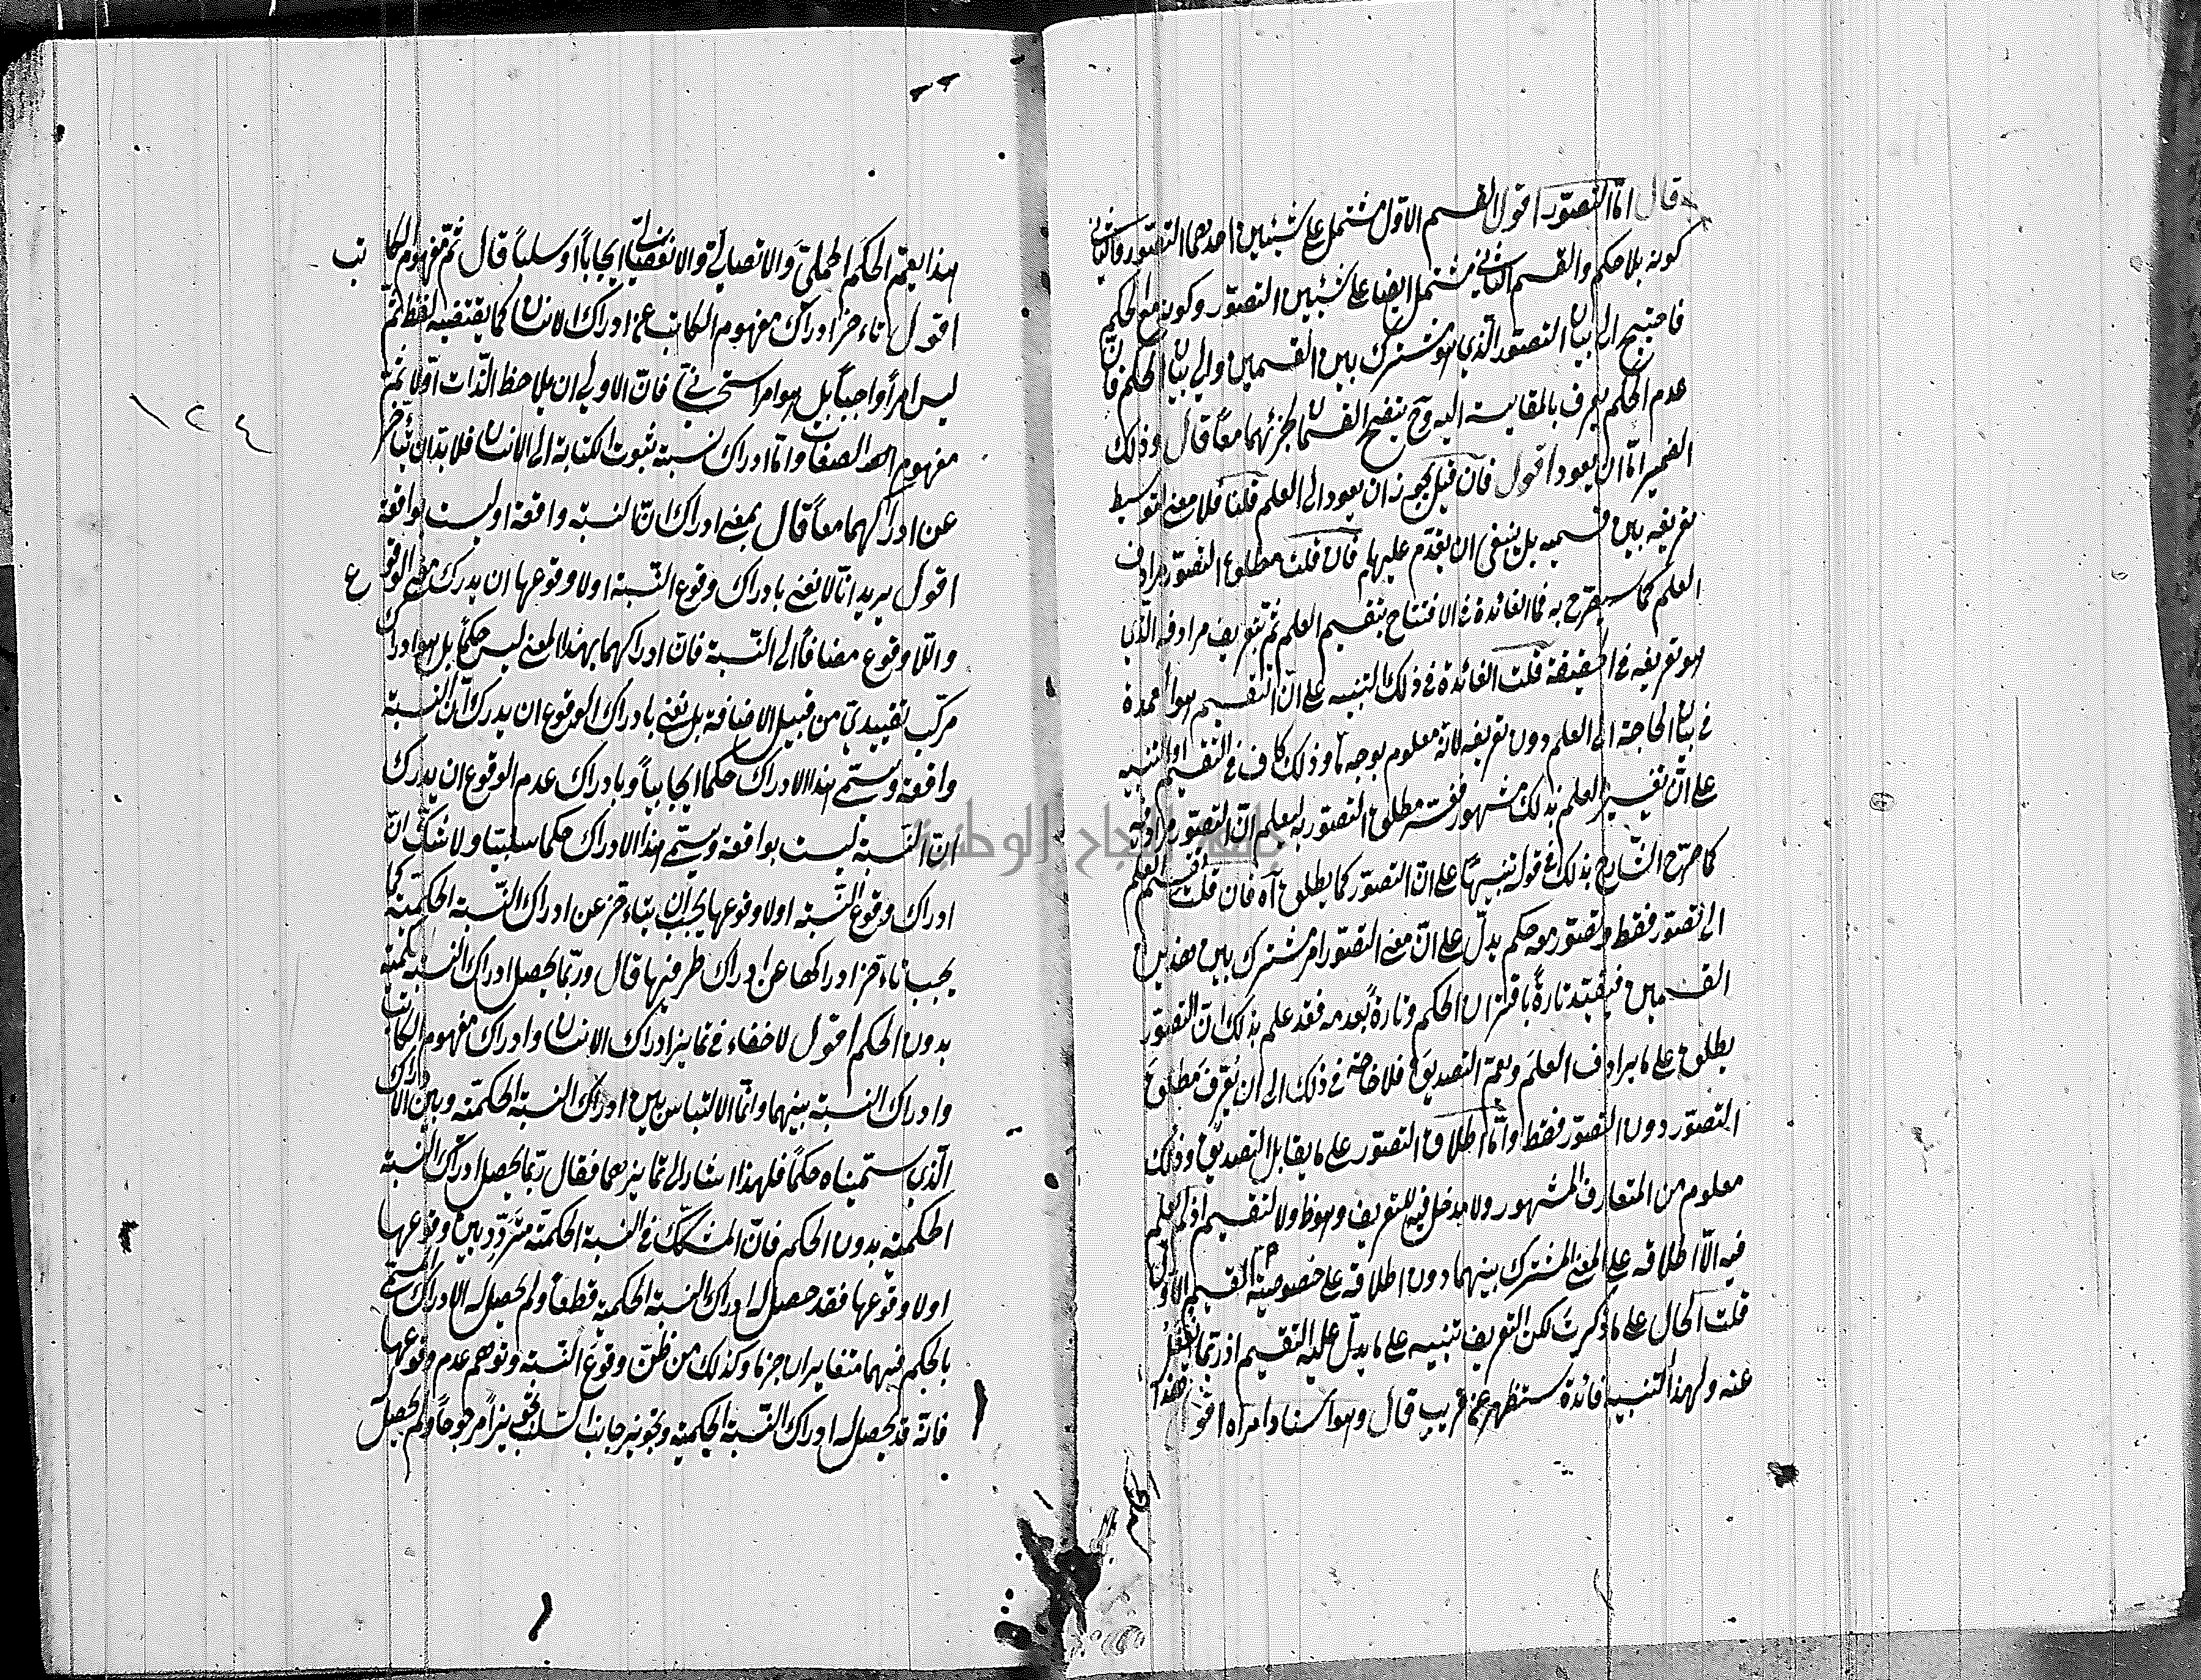 قال اما التصور اقول القسم الاول مشتمل على شيئين احدهما التصور والثاني
كونه بلا حكم والقسم الثاني مشتمل ايضا على شيئين التصور وكونه مع الحكم
فاحتيج الى بيان التصور الذي هو مشترك بين القسمين والى بيان الحكم فان
عدم الحكم يعرف بالمقايسة اليه وح يتضح القسمان بجزئيهما معًا قال وذلك
الضمير اما ان يعود اقول فان قيل يجوز ان يعود الى العلم قلنا فلا معنى لتوسيط
تعريفه بين قسميه بل ينبغى ان يقدم عليهما فان قلت مطلق التصور مرادف
العلم كما سيصرح به فما الفائدة في الافتتاح بتقسيم العلم ثم بتعريف مرادفه الذي
هو تعريفه في الحقيقة قلت الفائدة في ذلك التنبيه على ان التقسيم هو العمدة
في بيان الحاجة الى العلم دون تعريفه لانه معلوم بوجه ما وذلك كاف في التقسيم او التنبيه
على ان تفسير العلم بذلك مشهور ففسر مطلق التصور به ليعلم ان التصور مرادف
كما صرح الشارح بذلك في قوله تنبيهًا على ان التصور كما يطلق آه فان قلت تقسيم العلم
الى تصور فقط وتصور معه حكم يدل على ان معنى التصور امر مشترك بين هذين
القسمين فيقيد تارةً باقتران الحكم وتارةً بعدمه فقد علم بذلك ان التصور
يطلق على ما يرادف العلم ويعم التصديق فلا حاجة في ذلك الى ان يُعرّف مطلق
التصور دون التصور فقط واما اطلاق التصور على ما يقابل التصديق وذلك
معلوم من المتعارف المشهور ولا مدخل فيه للتعريف وهو ظ ولا لتقسيم اذ لم يعلم
فيه الا اطلاقه على المعنى المشترك بينهما دون اطلاقه على خصوصية القسيم الاول
قلت الحال على ما ذكرت لكن التعريف تنبيه على ما يدل عليه التقسيم اذ ربما يغفل
عنه ولهذا التنبيه فائدة ستظهر عن قريب قال وهو اسناد امر آه اقول هذا
هذا يعم الحكم الحملي والاتصالي والانفصالي ايجابًا او سلبًا قال ثم مفهوم الكاتب
اقول تاءخر ادراك مفهوم الكاتب عن ادراك الانسان كما يقتضيه لفظ ثم
ليس امرًا واجبًا بل هو امر استحساني فان الاولى ان يلاحظ الذات اولا ثم
مفهوم الصفات واما ادراك نسبة ثبوت الكتابة الى الانسان فلا بد ان يتأخر
عن ادراكهما معًا قال بمعنى ادراك ان النسبة واقعة او ليست بواقعة
اقول يريد انا لا نعني بادراك وقوع النسبة او لا وقوعها ان يدرك معنى الوقوع
واللا وقوع مضافًا الى النسبة فان ادراكهما بهذا المعنى ليس حكمًا بل هو ادراك
مركب تقييدي من قبيل الاضافة بل نعني بادراك الوقوع ان يدرك ان النسبة
واقعة ويسمى هذا الادراك حكمًا ايجابيًا وبادراك عدم الوقوع ان يدرك
ان النسبة ليست بواقعة ويسمى هذا الادراك حكما سلبيا ولا شك ان
ادراك وقوع النسبة او لا وقوعها يجب ان يتاءخر عن ادراك النسبة الحكمية كما
يجب تاءخر ادراكها عن ادراك طرفيها قال وربما يحصل ادراك النسبة الحكمية
بدون الحكم اقول لا خفاء في تمايز ادراك الانسان وادراك مفهوم الكاتب
وادراك النسبة بينهما وانما الالتباس بين ادراك النسبة الحكمية وبين الادراك
الذي سميناه حكمًا فلهذا اشار الى تمايزهما فقال ربما يحصل ادراك النسبة
الحكمية بدون الحكم فان المشكك في النسبة الحكمية متردد بين وقوعها
او لا وقوعها فقد حصل له ادراك النسبة الحكمية قطعًا ولم يحصل له الادراك المسمى
بالحكم فهما متغايران جزما وكذلك من ظن وقوع النسبة وتوهم عدم وقوعها
فانه قد يحصل له ادراك النسبة الحكمية وتجويز جانب السلب تجويزًا مرجوحًا ولم يحصل
١٢٤
جامعة النجاح الوطنية